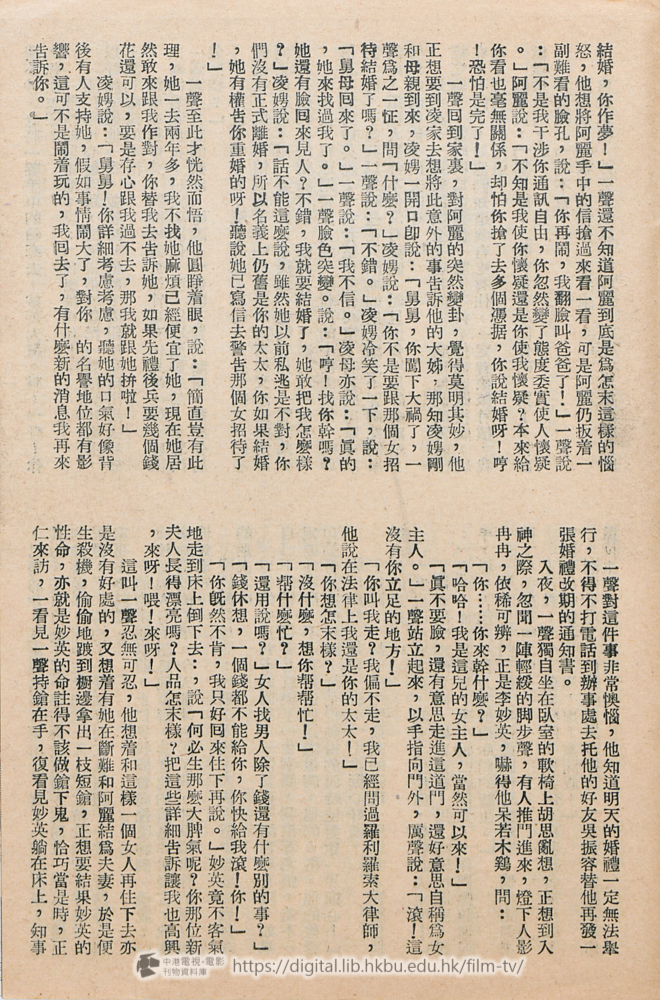 結婚，你作夢！」一聲還不知道阿麗到底是爲怎末這樣的惱
怒，他想將阿麗手中的信搶過來看一看，可是阿麗仍扳着一
副難看的臉孔，說：「你再鬧，我翻臉叫爸爸了！」一聲說
：「不是我干涉你通訊自由，你忽然變了態度委實使人懷疑
。」阿麗說：「不知是我使你懷疑還是你使我懷疑？本來給
你看也毫無關係，却怕你搶了去多個憑据，你說結婚呀！哼
！恐怕是完了！」
一聲回到家裏，對阿麗的突然變卦，覺得莫明其妙，他
正想要到凌家去想將此意外的事告訴他的大姊，那知凌娚剛
和母親到來，凌娚一開口卽說：「舅舅，你闖下大禍了，一
聲爲之一怔，問「什麽？」凌娚說：「你不是要跟那個女招
待結婚了嗎？」一聲說：「不錯。」凌娚冷笑了一下，說：
「舅母回來了。」一聲說：「我不信。」凌母亦說：「眞的
，她來找過我了。」一聲臉色突變。說：「哼！找你幹嗎？
她還有臉回來見人？不錯，我就要結婚了，她敢把我怎麽樣
？」凌娚說：「話不能這麽說，雖然她以前私逃是不對，你
們沒有正式離婚，所以名義上仍舊是你的太太，你如果結婚
，她有權告你重婚的呀！聽說她已寫信去警告那個女招待了
！」
一聲至此才恍然而悟，他圓睜着眼，說：「簡直豈有此
理，她一去兩年多，我不找她麻煩已經便宜了她，現在她居
然敢來跟我作對，你替我去告訴她，如果先禮後兵要幾個錢
花還可以，要是存心跟我過不去，那我就跟她拚啦！」
凌娚說：「舅舅！你詳細考慮考慮，聽她的口氣好像背
後有人支持她，假如事情鬧大了，對你　的名譽地位都有影
響，這可不是鬧着玩的，我囘去了，有什麽新的消息我再來
告訴你。」
一聲對這件事非常懊惱，他知道明天的婚禮一定無法舉
行，不得不打電話到辦事處去托他的好友吳振容替他再發一
張婚禮改期的通知書。
入夜，一聲獨自坐在臥室的軟椅上胡思亂想，正想到入
神之際，忽聞一陣輕緩的脚步聲，有人推門進來，燈下人影
冉冉，依稀可辨，正是李妙英，嚇得他呆若木鷄，問：
「你……你來幹什麽？」
「哈哈！我是這兒的女主人，當然可以來！」
「眞不要臉，還有意思走進這道門，還好意思自稱爲女
主人。」一聲站立起來，以手指向門外，厲聲說：「滾！這
沒有你立足的地方！」
「你叫我走？我偏不走，我已經問過羅利羅索大律師，
他說在法律上我還是你的太太！」
「你想怎末樣？」
「沒什麽，想你幫幫忙！」
「幫什麽忙？」
「還用說嗎？」女人找男人除了錢還有什麽別的事？」
「錢休想，一個錢都不能給你，你快給我滾！你！」
「你旣然不肯，我只好回來住下再說。」妙英竟不客氣
地走到床上倒下去：，說「何必生那麽大脾氣呢？你那位新
夫人長得漂亮嗎？人品怎末樣？把這些詳細告訴讓我也高興
，來呀！喂！來呀！」
這叫一聲忍無可忍，他想着和這樣一個女人再住下去亦
是沒有好處的，又想着有她在斷難和阿麗結爲夫妻，於是便
生殺機，偷偷地踱到櫥邊拿出一枝短鎗，正想要結果妙英的
性命，亦就是妙英的命註得不該做鎗下鬼，恰巧當是時，正
仁來訪，一看見一聲持鎗在手，復看見妙英躺在床上，知事
中港電視·電影
刊物資料庫
https://digital.lib.hkbu.edu.hk/film-tv/